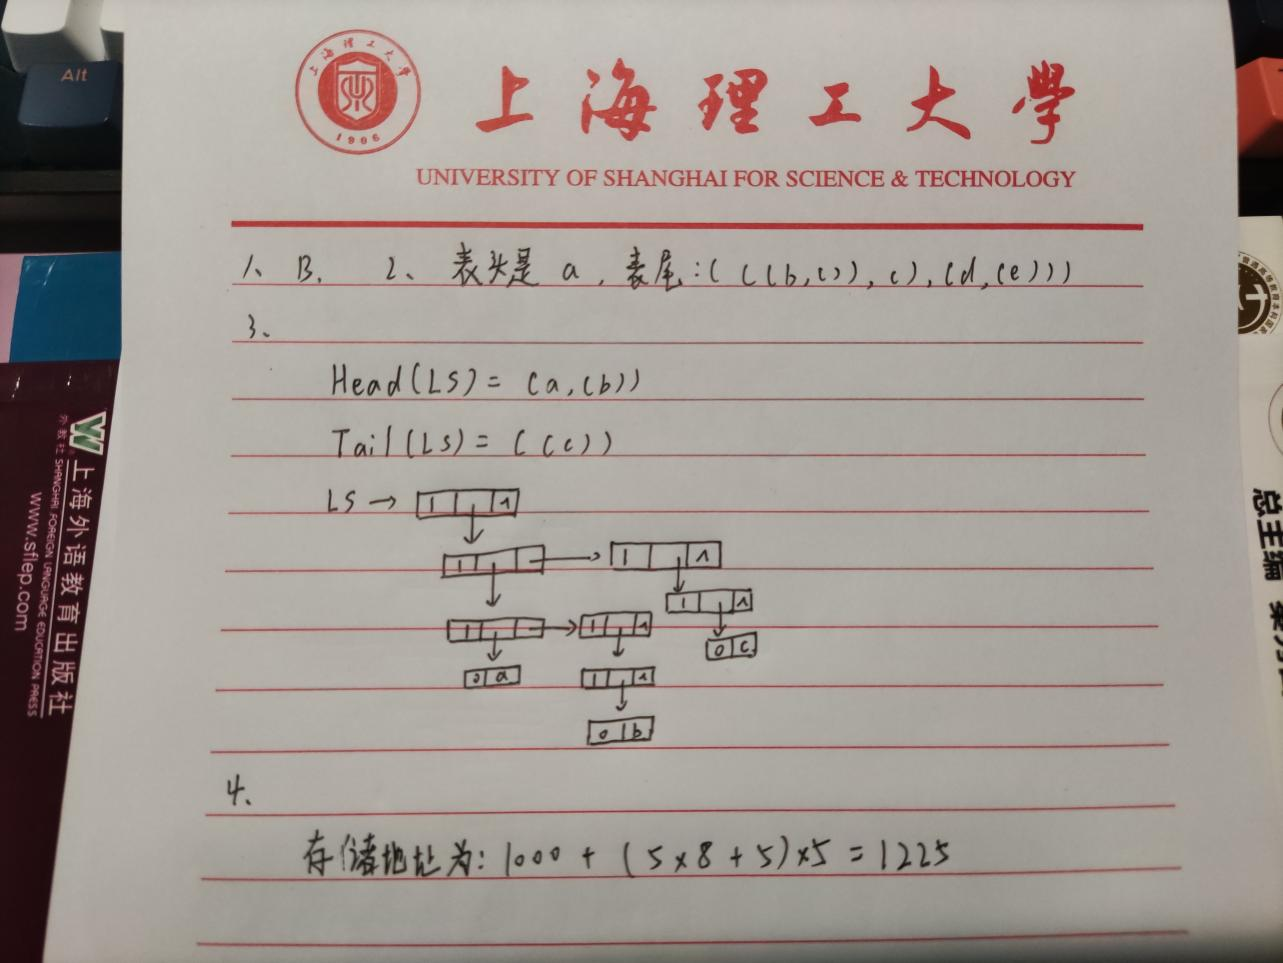 Alt
上海理工大學
1906
上海理工大學
UNIVERSITY OF SHANGHAI FOR SCIENCE & TECHNOLOGY
1、B. 2、表头是 a , 表尾:( ( ( (b,c)), c), (d,(e)))
3、
Head(LS) = (a,(b))
Tail(LS) = ((c))
LS →
1 ∧
1 1 ∧
1 ∧
1 1 ∧
0 c
0 a 1 ∧
0 b
4、
存储地址为: 1000 + (5×8+5)×5 = 1225
W 上海外语教育出版社
外教社 SHANGHAI FOREIGN LANGUAGE EDUCATION PRESS
www.sflep.com
总主编